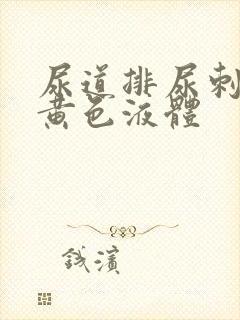 尿道排尿刺
黄色液體
錢濱